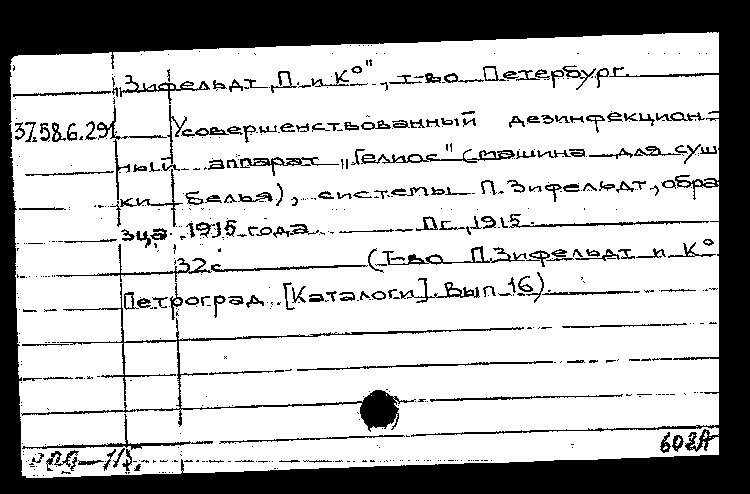 „Зифельдт, П. и К°", т-во Петербург.
37.58.6.291 Усовершенствованный дезинфекцион-
ный аппарат „Гелиос" (машина для суш-
ки белья), системы П. Зифельдт, обра
зца 1915 года. Пг., 1915.
32с (Т-во П. Зифельдт и К°
Петроград. [Каталоги]. Вып 16).
608А